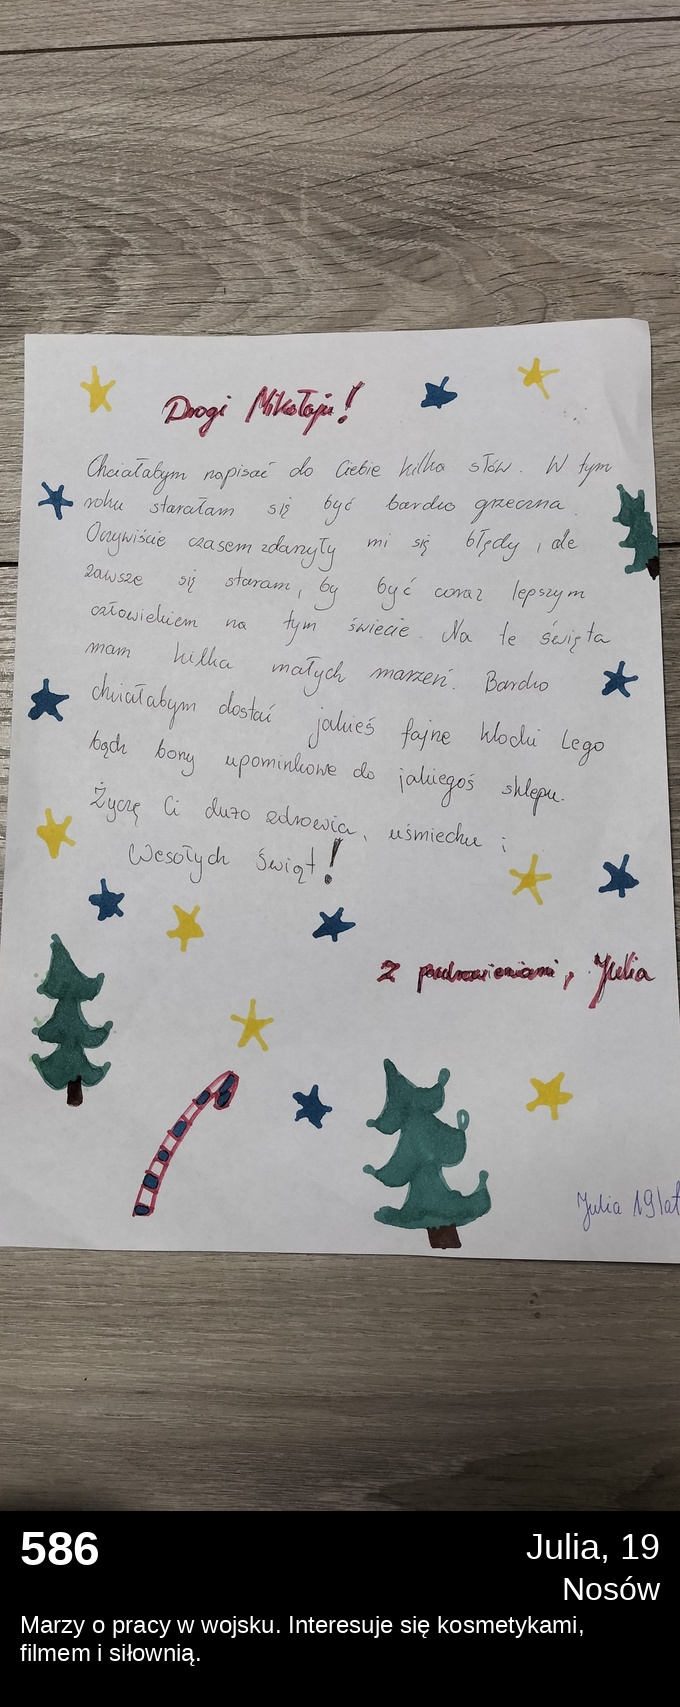 Drogi Mikołaju!
Chciałabym napisać do Ciebie kilka słów. W tym
roku starałam się być bardzo grzeczna.
Oczywiście czasem zdarzyły mi się błędy, ale
zawsze się staram, by być coraz lepszym
człowiekiem na tym świecie. Na te święta
mam kilka małych marzeń. Bardzo
chciałabym dostać jakieś fajne klocki Lego
bądź bony upominkowe do jakiegoś sklepu.
Życzę Ci dużo zdrowia, uśmiechu i
Wesołych Świąt!
Z pozdrowieniami, Julia
Julia 19lat
586
Julia, 19
Nosów
Marzy o pracy w wojsku. Interesuje się kosmetykami,
filmem i siłownią.